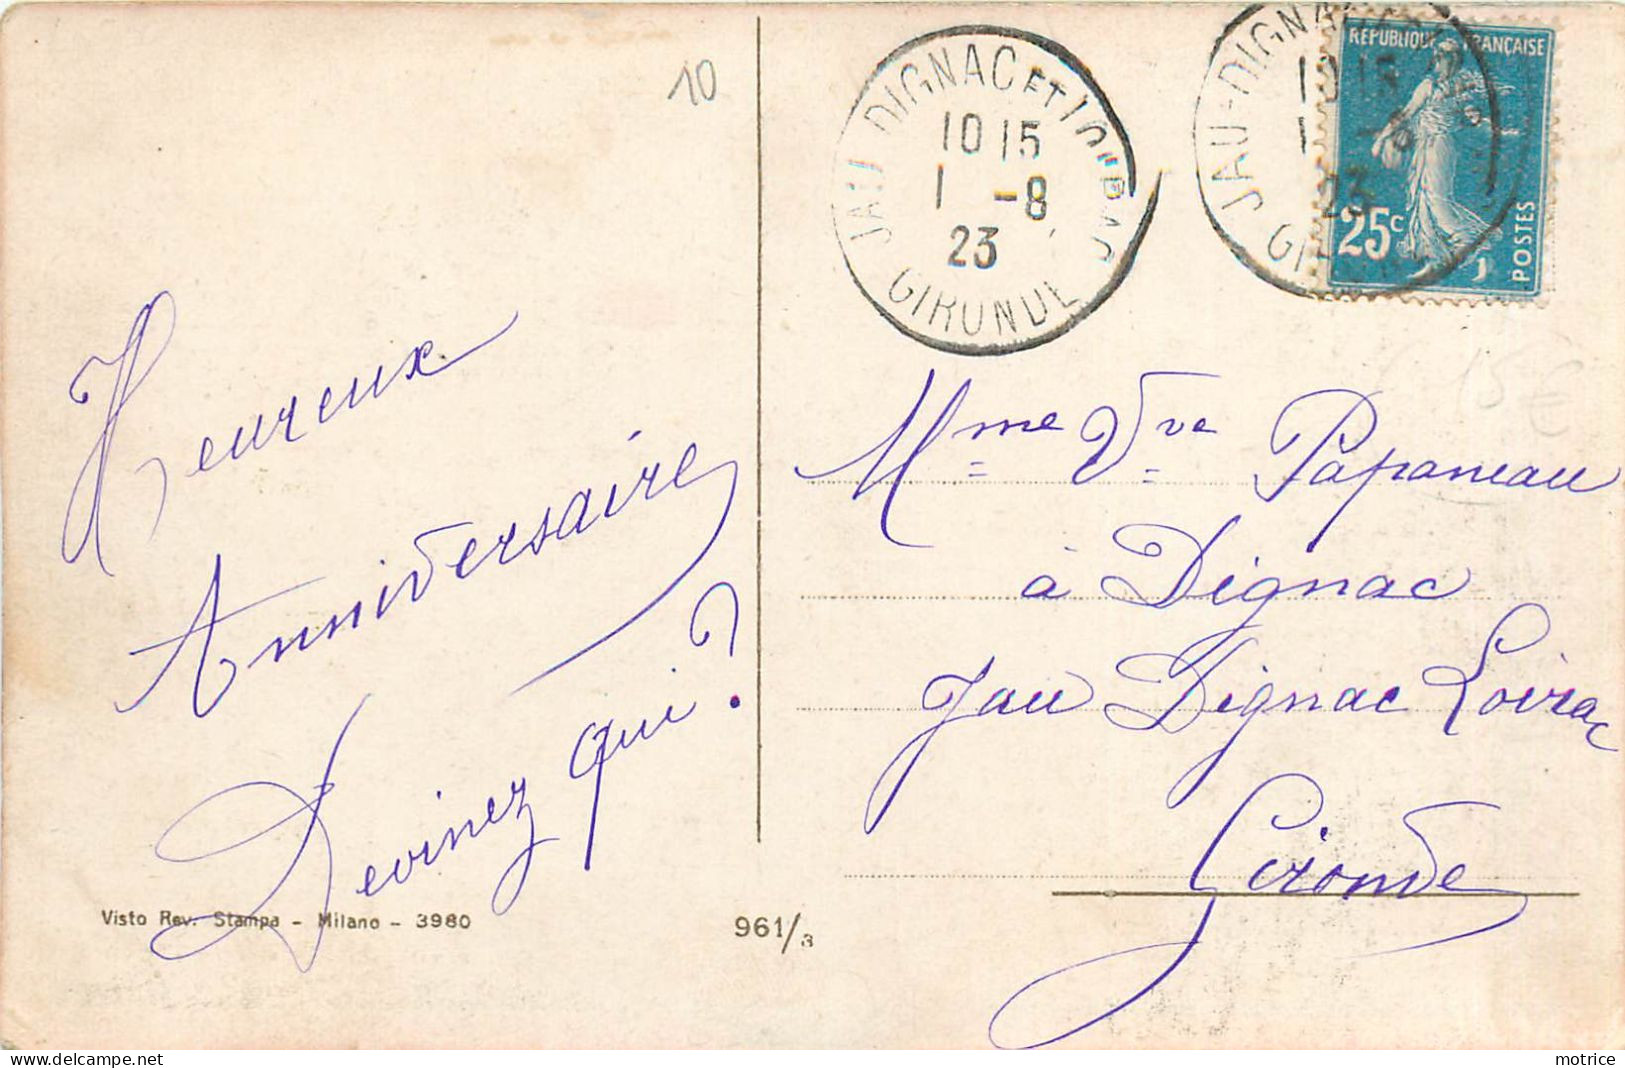 10
JAU DIGNAC ET LOIRAC
10 15
1 -8
23
GIRONDE
JAU-DIGNAC
10 15
1 -8
23
RÉPUBLIQUE FRANÇAISE
25c
POSTES
15 €
Heureux
Anniversaire
Devinez qui?
Mme Vve Papaneau
à Dignac
Jau Dignac Loirac
Gironde
Visto Rev. Stampa - Milano - 3980
961/3
motrice